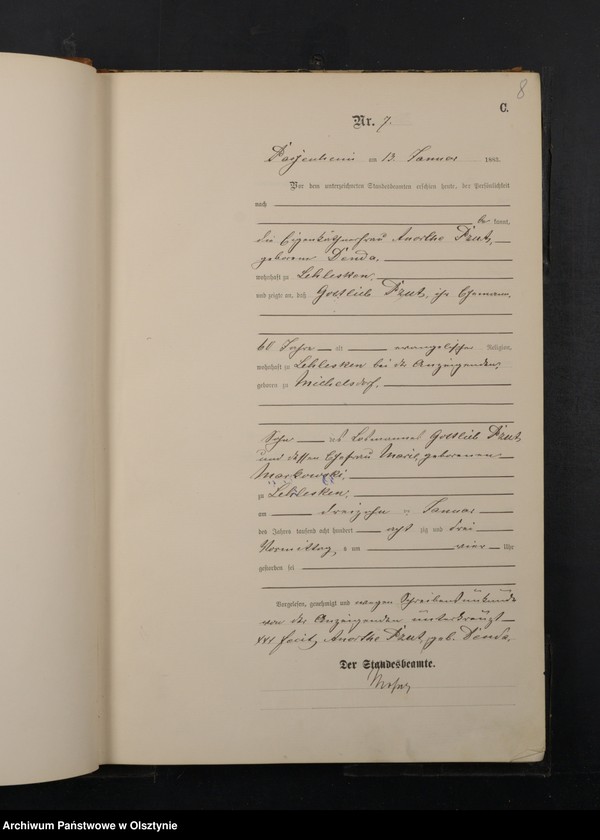 8
C.
Nr. 7.
am 13. Januar 1883.
Vor dem unterzeichneten Standesbeamten erschien heute, der Persönlichkeit
nach
be kannt,
die Eigenkäthnerfrau Anorthe Dzut,
geborene Denda,
wohnhaft zu Lehlesken,
und zeigte an, daß Gottlieb Dzut, ihr Ehemann,
60 Jahre alt evangelischer Religion,
wohnhaft zu Lehlesken bei der Anzeigenden,
geboren zu Michelsdorf,
Sohn des Losmannes Gottlieb Dzut
und dessen Ehefrau Marie, geborenen
Markowski,
zu Lehlesken,
am dreizehn ten Januar
des Jahres tausend acht hundert acht zig und drei
Vormittag, s um vier Uhr
gestorben sei
Vorgelesen, genehmigt und wegen Schreibensunkunde
von der Anzeigenden unterkreuzt
xxx fecit, Anorthe Dzut, geb. Denda,
Der Standesbeamte.
Archiwum Państwowe w Olsztynie